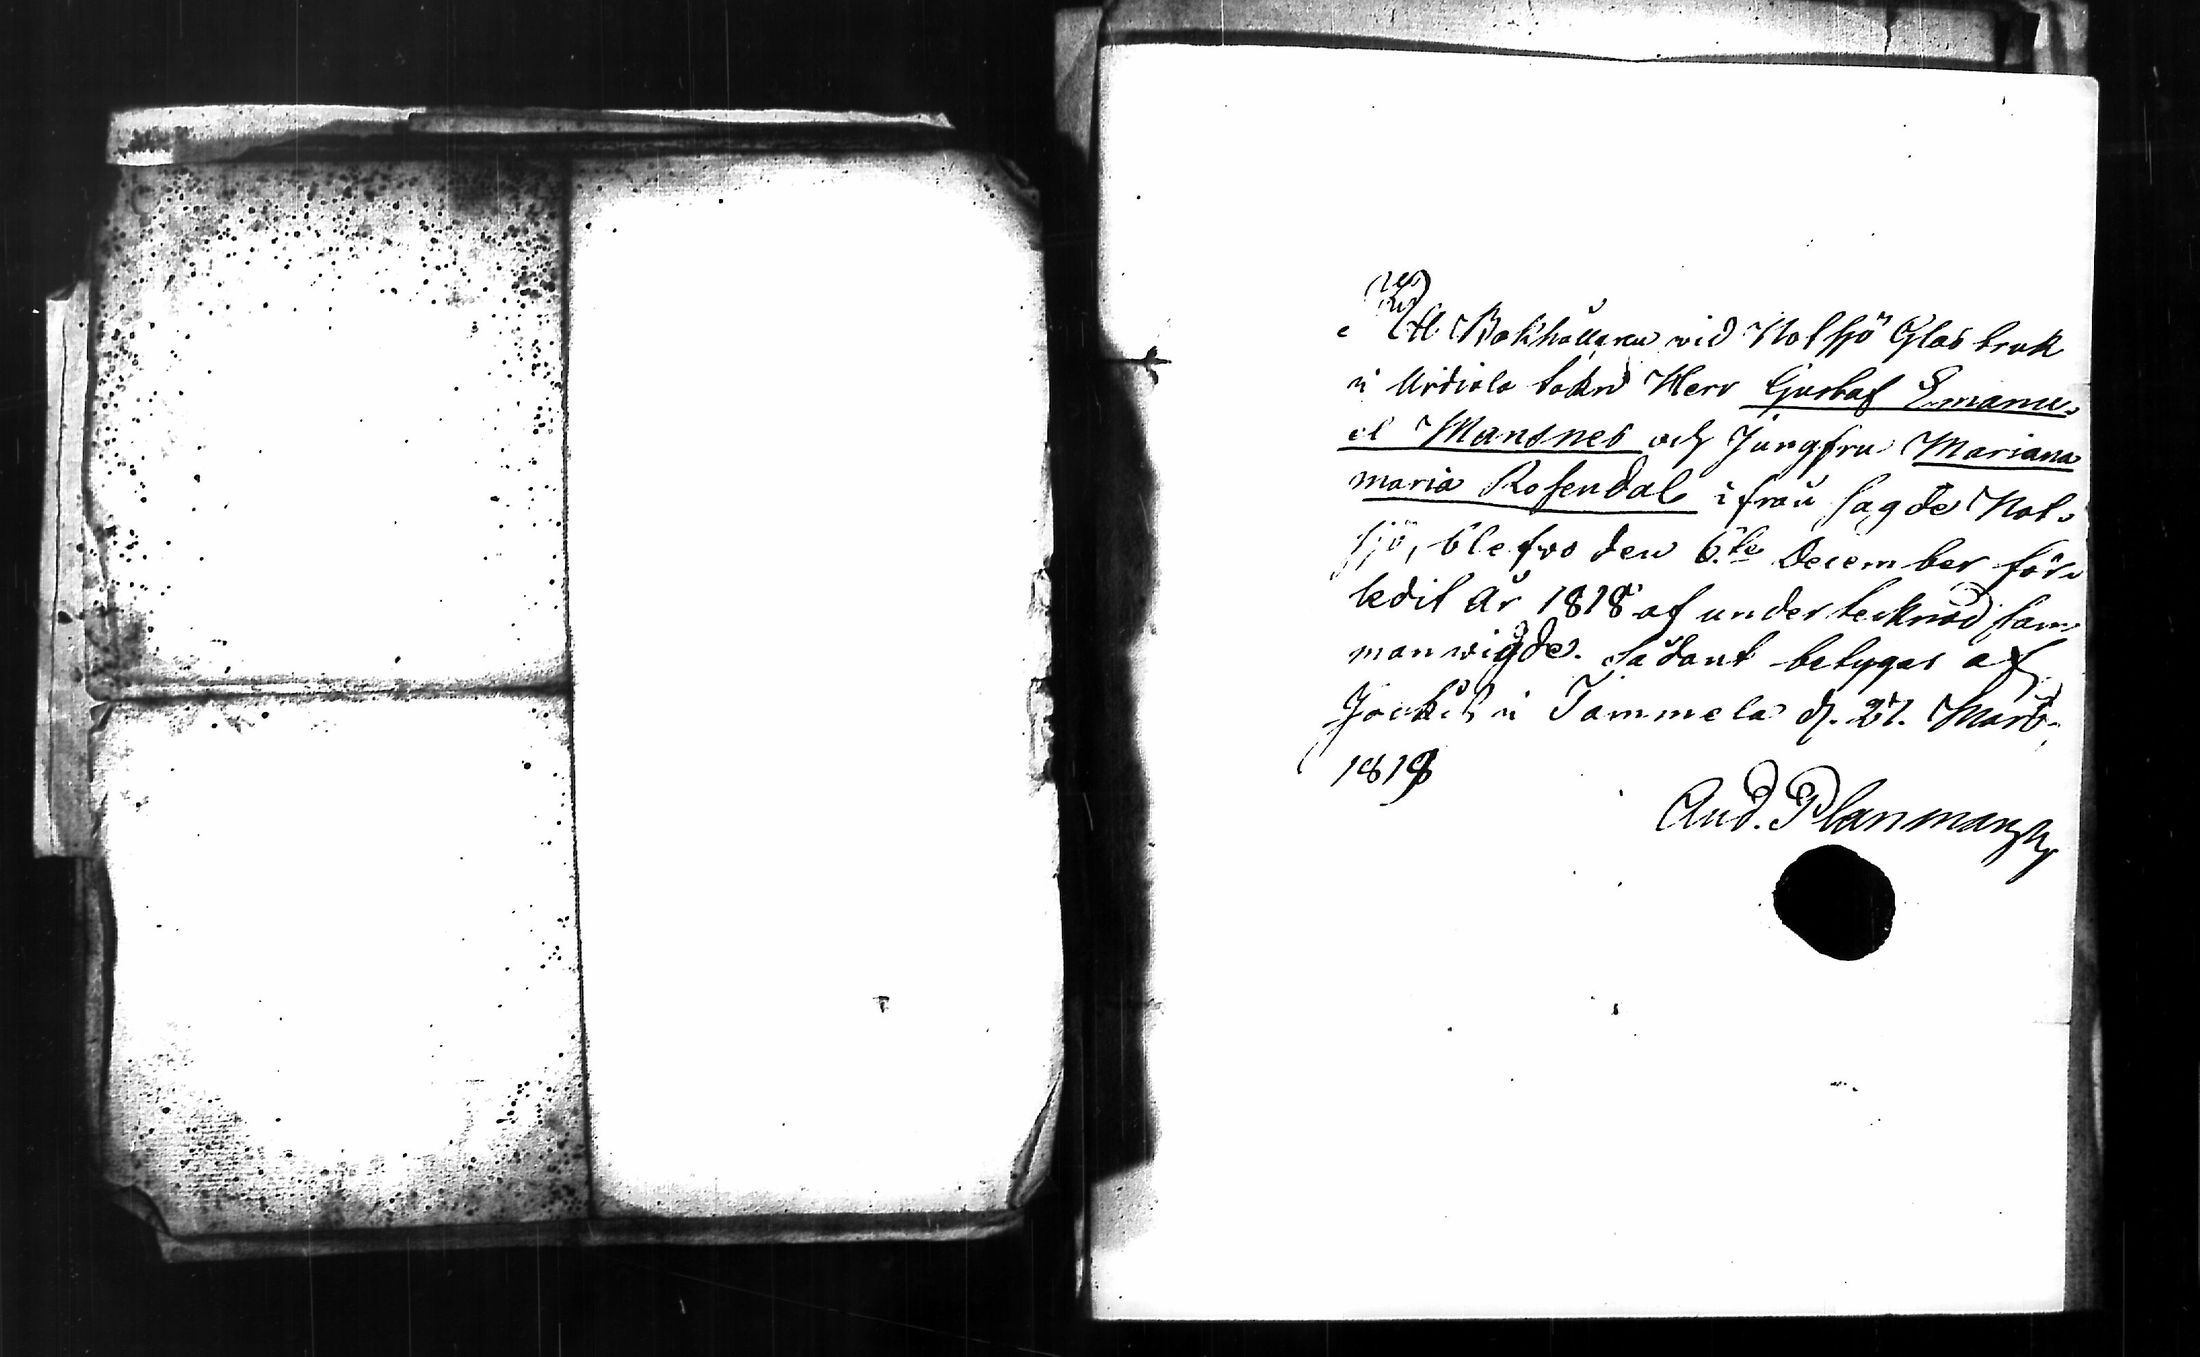 Att Bokhållaren wid Notsjö Glas bruk
i Urdiala Sokn Herr Gustaf Emanu-
el Mansnes och Jungfru Mariana
maria Rosendal ifrån sagde Not-
sjö, blefvo den 6.te December för-
ledit År 1818 af undertecknad sam
manwigde. Sådant betygas af
Jockis i Tammela d. 27. Marts
1819
And. Planman